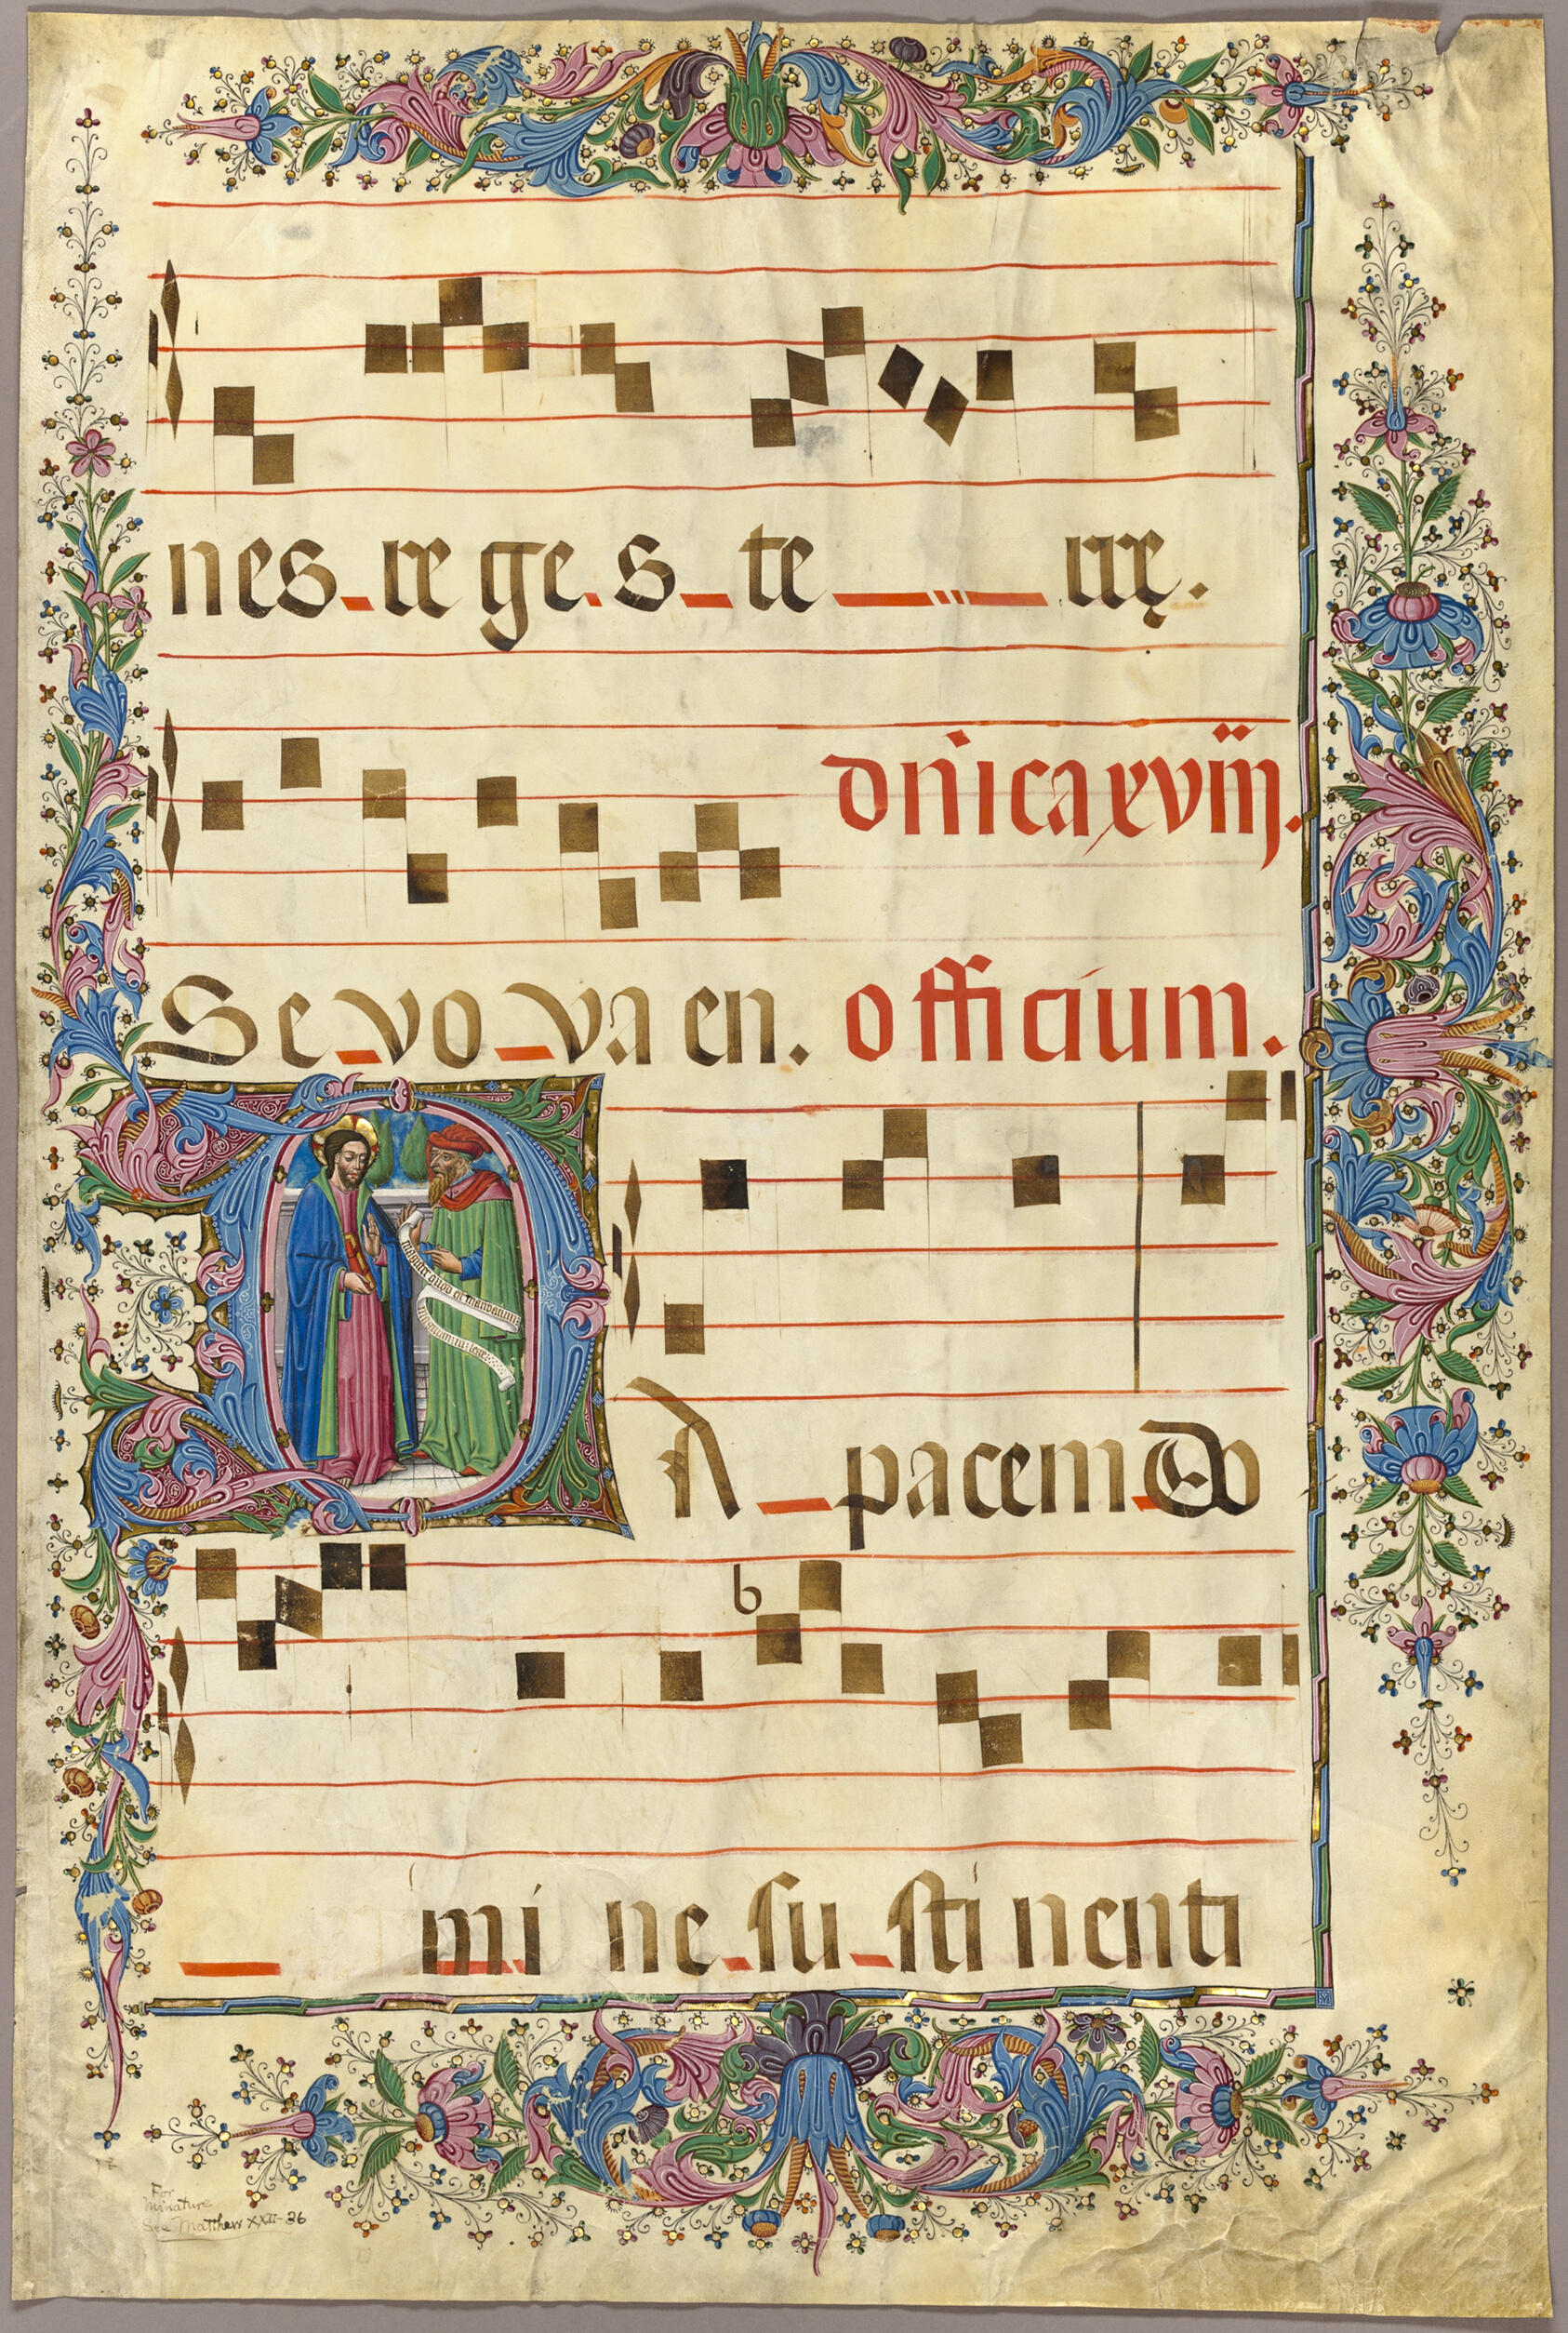 nes rege s te rrę.
dnica xviij.
Se vo va en. officium.
magister quod est mandatum
magnum in lege
A pacem Do
b
mi ne su sti nenti
For
Miniature
See Matthew XXII-36